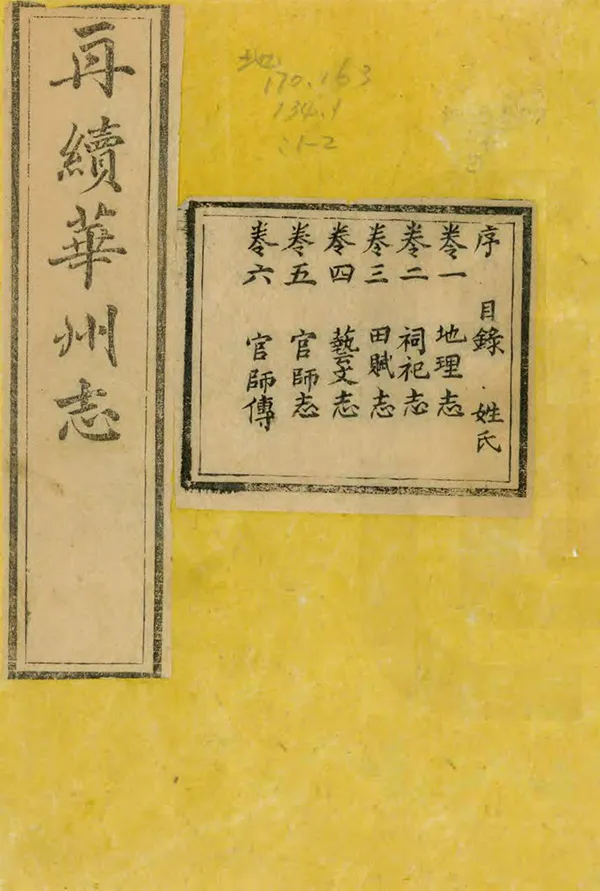 再續華州志
地
170.163
134.1
:1-2
序 目錄 姓氏
卷一 地理志
卷二 祠祀志
卷三 田賦志
卷四 藝文志
卷五 官師志
卷六 官師傳